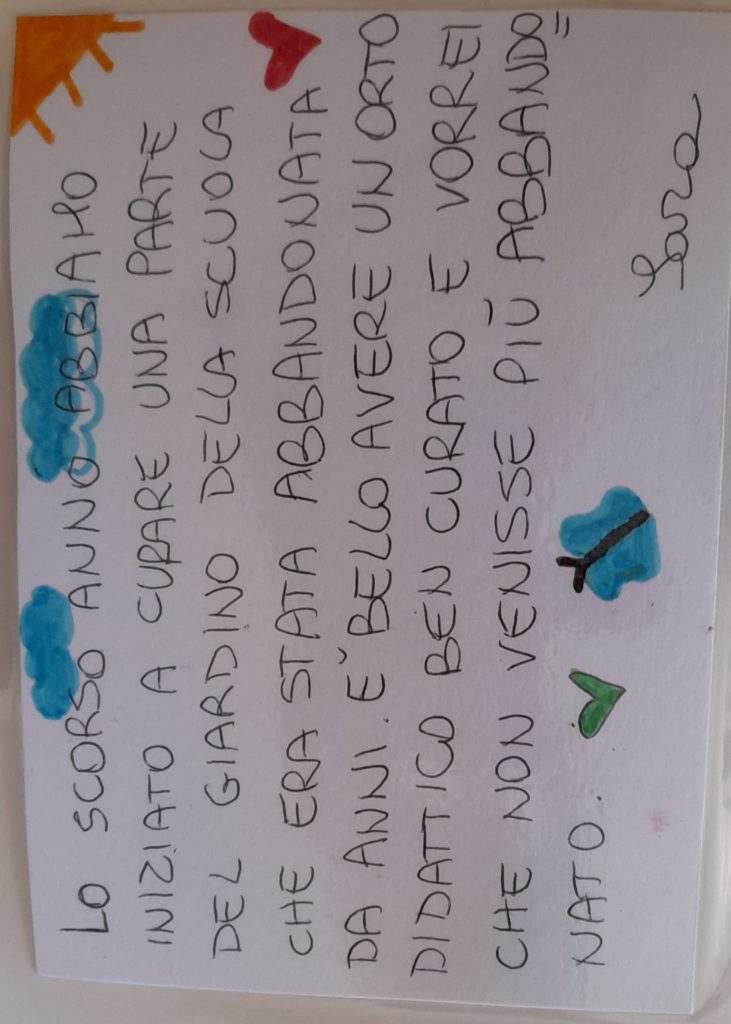 LO SCORSO ANNO ABBIAMO
INIZIATO A CURARE UNA PARTE
DEL GIARDINO DELLA SCUOLA
CHE ERA STATA ABBANDONATA
DA ANNI. È BELLO AVERE UN ORTO
DIDATTICO BEN CURATO E VORREI
CHE NON VENISSE PIÙ ABBANDO=
NATO.
Sara